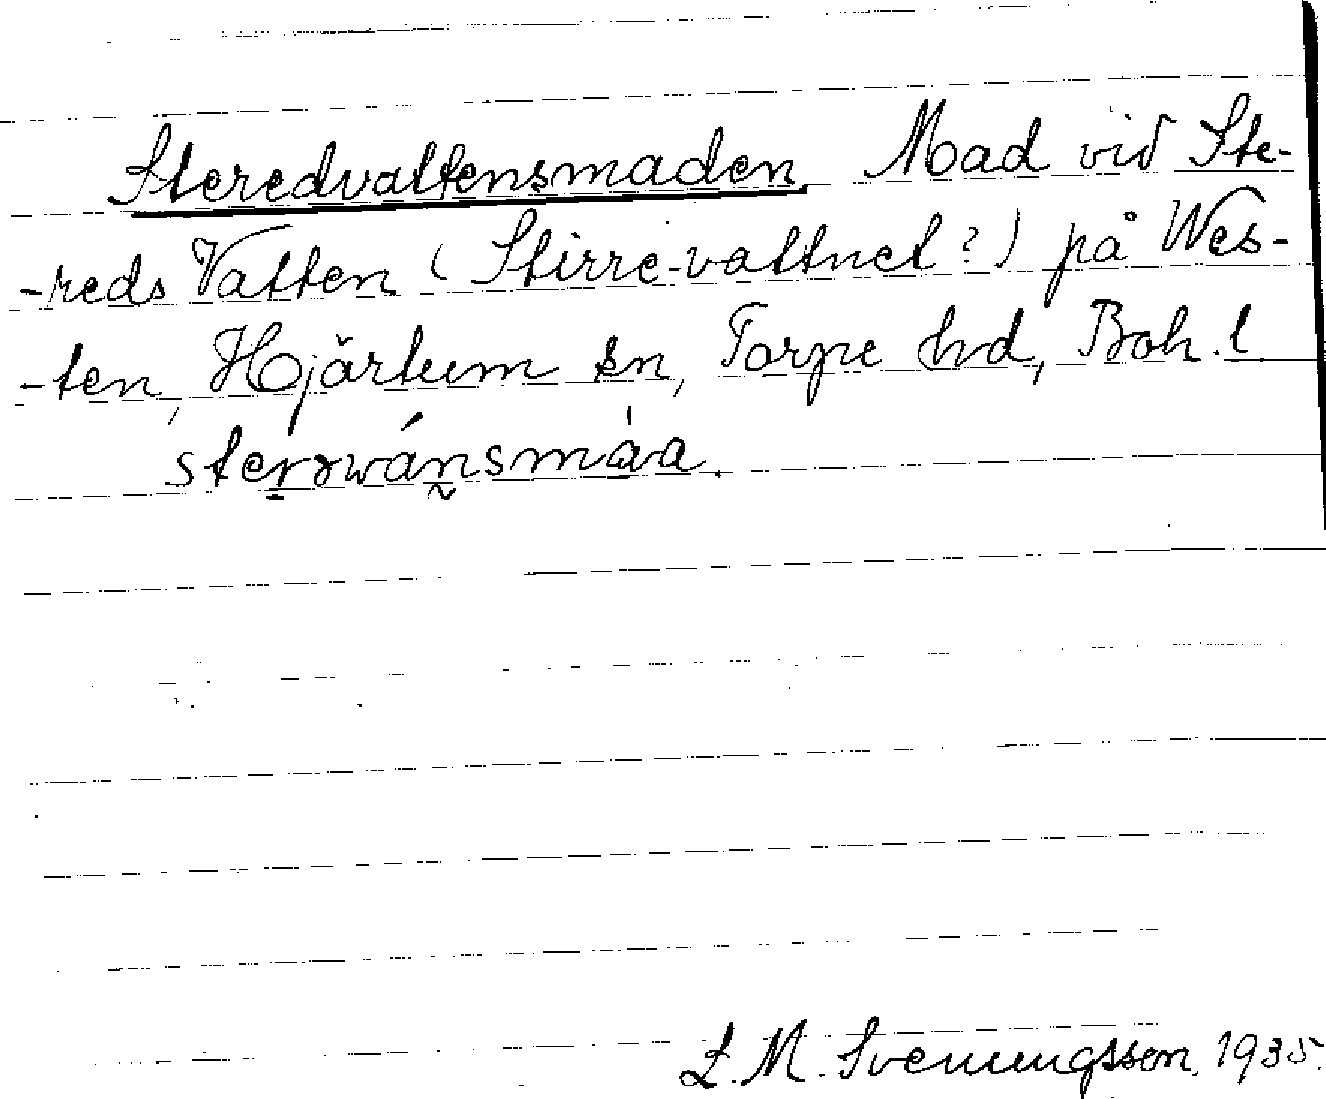 Steredvattensmaden. Mad vid Ste-
-reds Vatten (Stirre-vattnet?) på Wes-
-ten, Hjärtum sn, Torpe hd, Boh. l.
sterəwáṇsmàa.
L. M. Svenungsson, 1935.